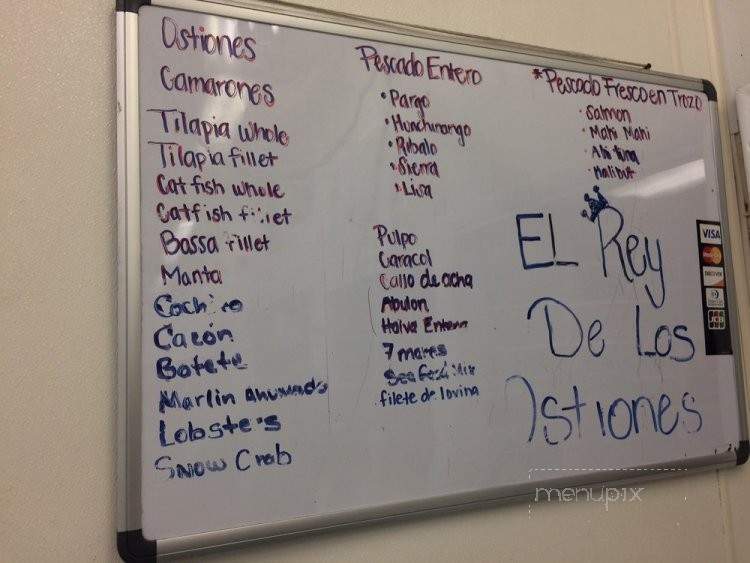 Ostiones
Camarones
Tilapia Whole
Tilapia fillet
Catfish whole
Catfish fillet
Bassa fillet
Manta
Cochito
Cazón
Botete
Marlin Ahumado
Lobster's
Snow Crab
Pescado Entero
• Pargo
• Hunchinango
• Robalo
• Sierra
• Lisa
Pulpo
Caracol
Callo de acha
Abulon
Haiva Entera
7 mares
Seafood Mix
filete de lovina
*Pescado Fresco en Trozo
• Salmon
• Mahi Mahi
• Ahi tuna
• Halibut
EL Rey
De Los
Ostiones
VISA
MasterCard
DISCOVER
JCB
menupix